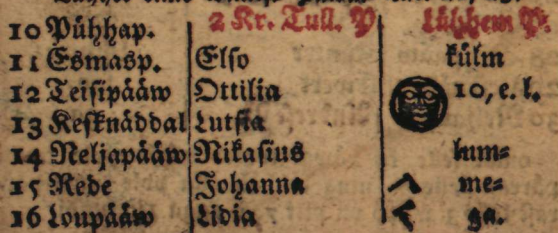 10 Pühhap. 2 Kr. Tull. P. Lühhem P.
11 Esmasp. Elso külm
12 Teisipääw Ottilia 10, e. l.
13 Kesknäddal Lutsia
14 Neljapääw Nikasius lum⸗
15 Rede Johanna me⸗
16 Loupääw Lidia ga.